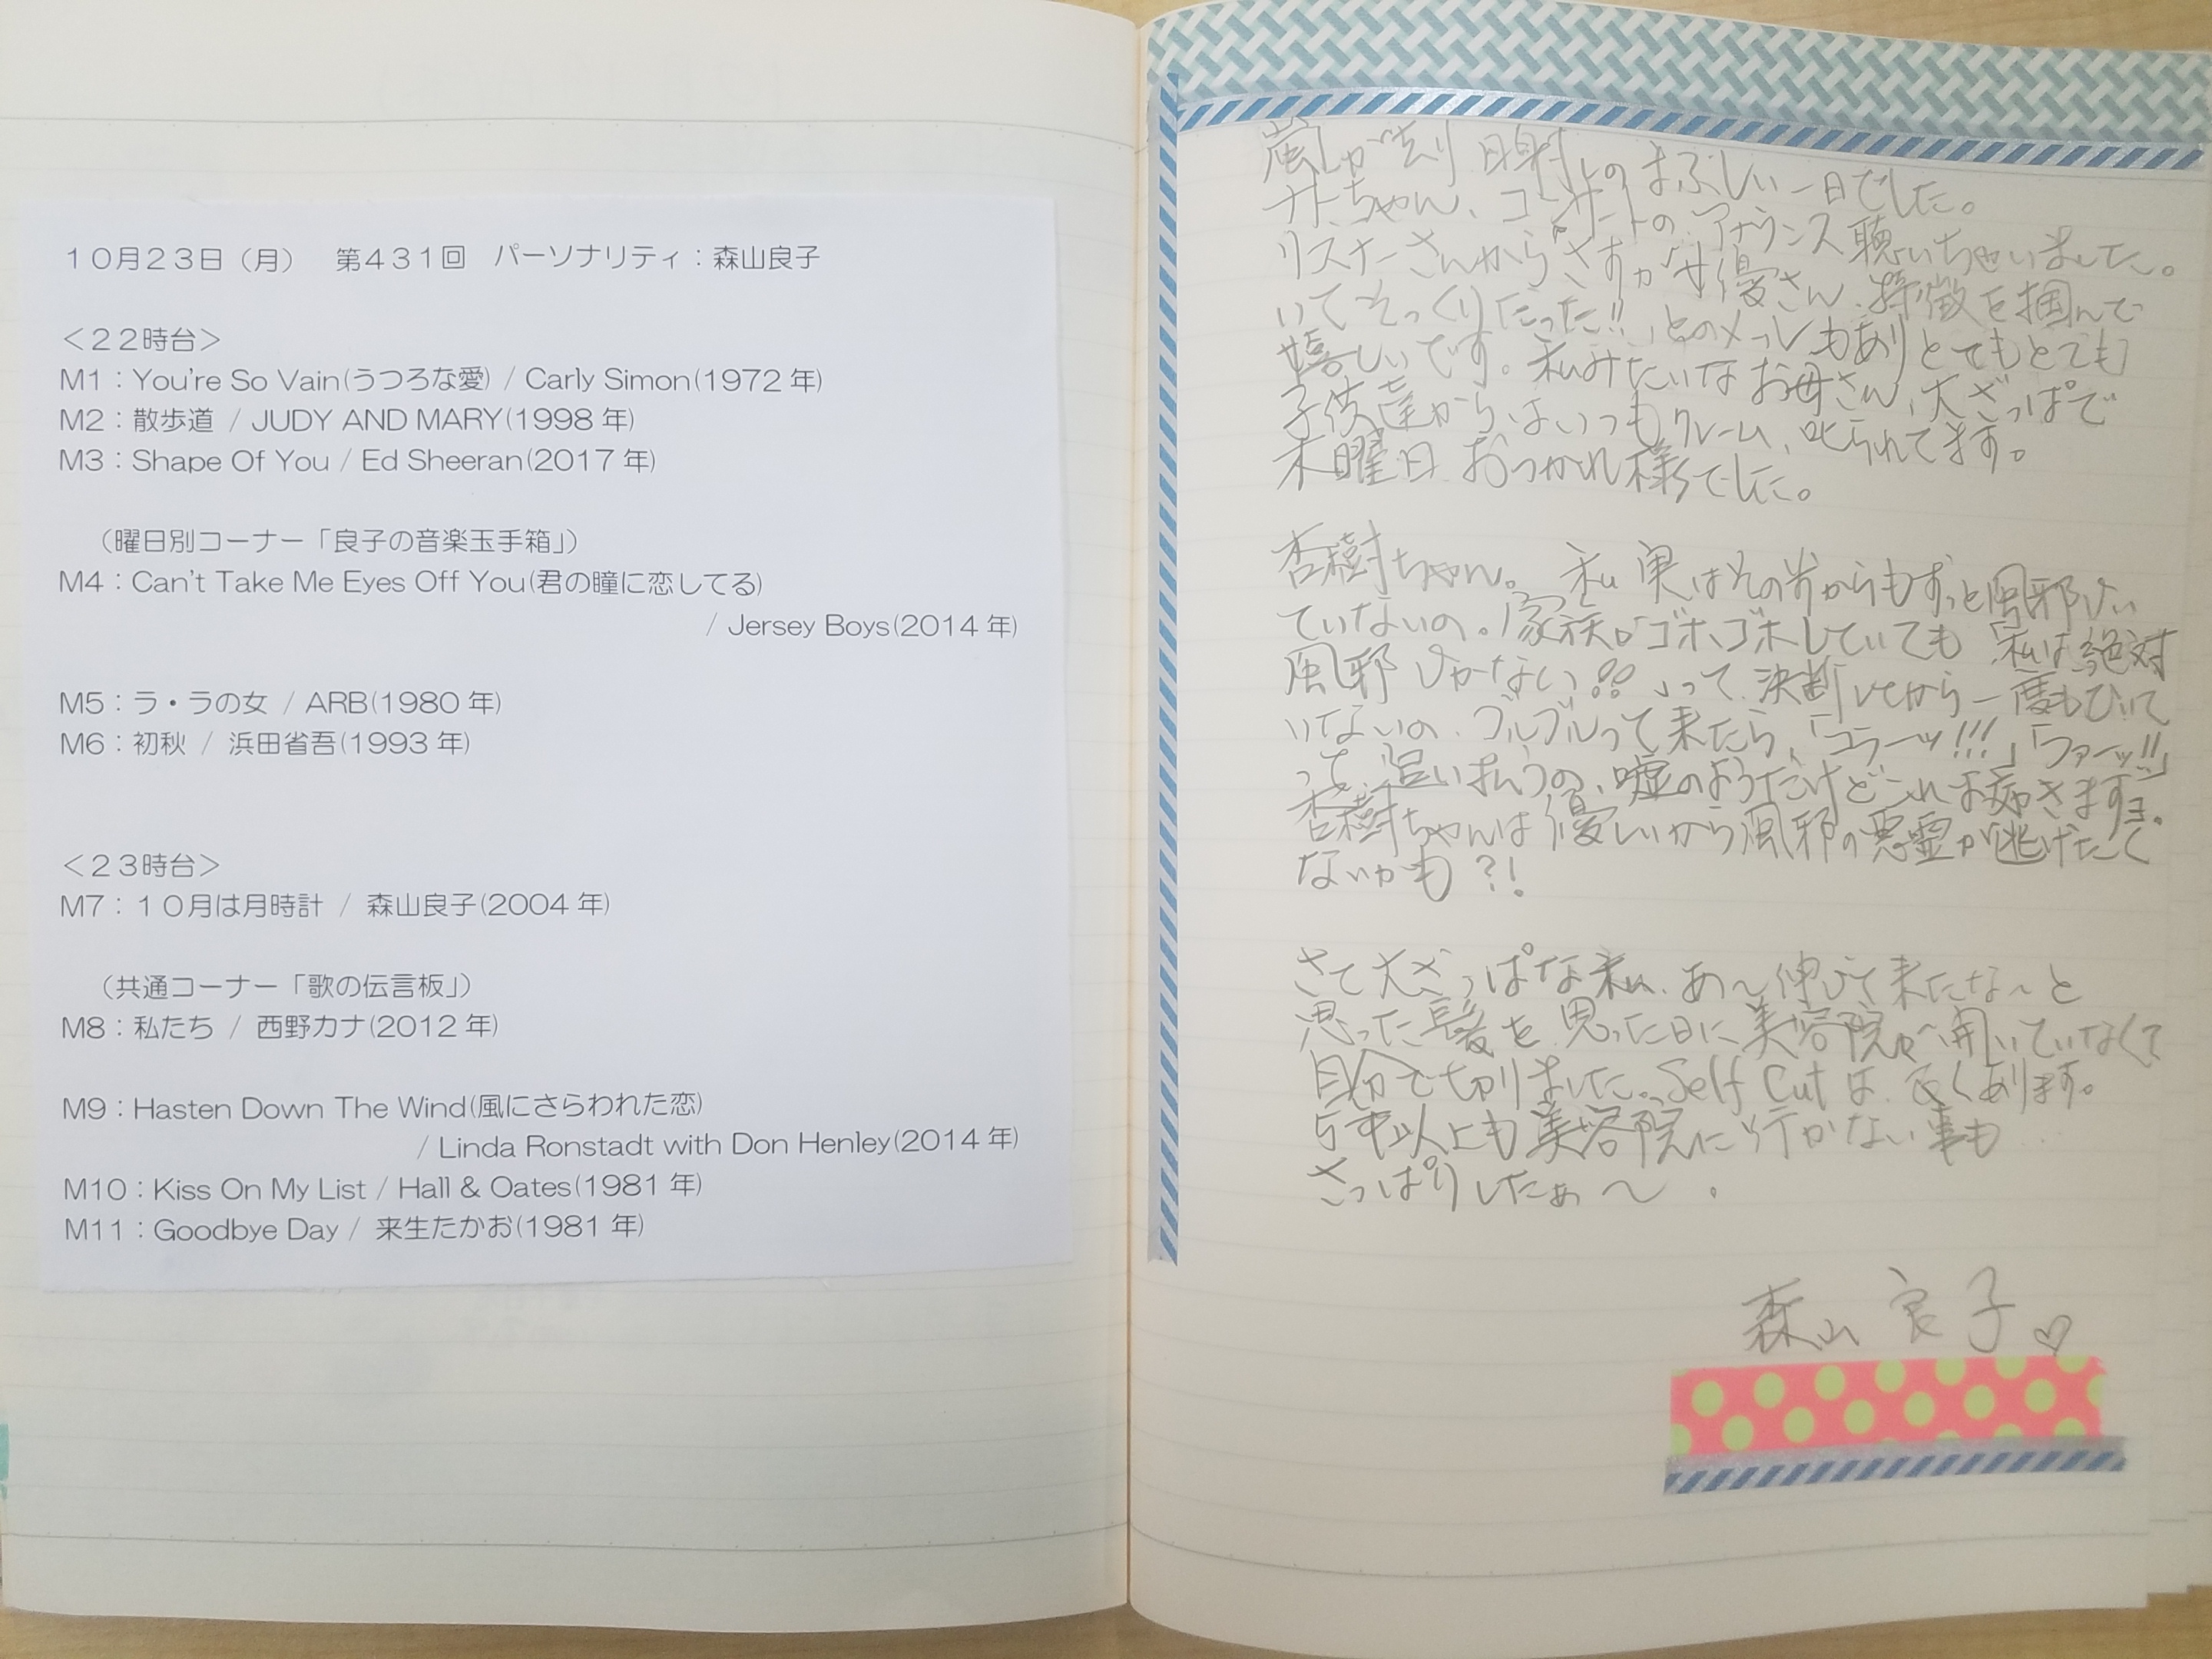 10月23日（月）　第431回　パーソナリティ：森山良子
＜22時台＞
M1：You're So Vain(うつろな愛) / Carly Simon(1972年)
M2：散歩道 / JUDY AND MARY(1998年)
M3：Shape Of You / Ed Sheeran(2017年)
（曜日別コーナー「良子の音楽玉手箱」）
M4：Can't Take Me Eyes Off You(君の瞳に恋してる)
/ Jersey Boys(2014年)
M5：ラ・ラの女 / ARB(1980年)
M6：初秋 / 浜田省吾(1993年)
＜23時台＞
M7：10月は月時計 / 森山良子(2004年)
（共通コーナー「歌の伝言板」）
M8：私たち / 西野カナ(2012年)
M9：Hasten Down The Wind(風にさらわれた恋)
/ Linda Ronstadt with Don Henley(2014年)
M10：Kiss On My List / Hall & Oates(1981年)
M11：Goodbye Day / 来生たかお(1981年)
嵐が去り 日射しのまぶしい一日でした。
ちゃん、コンサートの、アナウンス聴いちゃいました。
リスナーさんから"さすが女優さん、特徴を掴んで
いてそっくりだった!!、とのメールもありとてもとても
嬉しいです。私みたいなお母さん、大ざっぱで
子供達からはいつもクレーム、叱られてます。
木曜日 おつかれ様でした。
杏樹ちゃん。私 実はその昔からもずっと風邪ひい
ていないの。家族がゴホゴホしていても「私は絶対
風邪ひかない!!」って、決断してから一度もひいて
いないの、ブルブルって来たら、「コラーッ!!!」「ファーッ!!」
って追い払うの、嘘のようだけどこれは効きますヨ。
杏樹ちゃんは優しいから風邪の悪霊が逃げたく
ないかも?!
さて大ざっぱな私、あ〜伸びて来たな〜と
思った髪を 思った日に美容院が開いていなくて
自分で切りました。Self Cutは よくあります。
5年以上も美容院に行かない事も…
さっぱりしたぁ〜。
森山良子♡